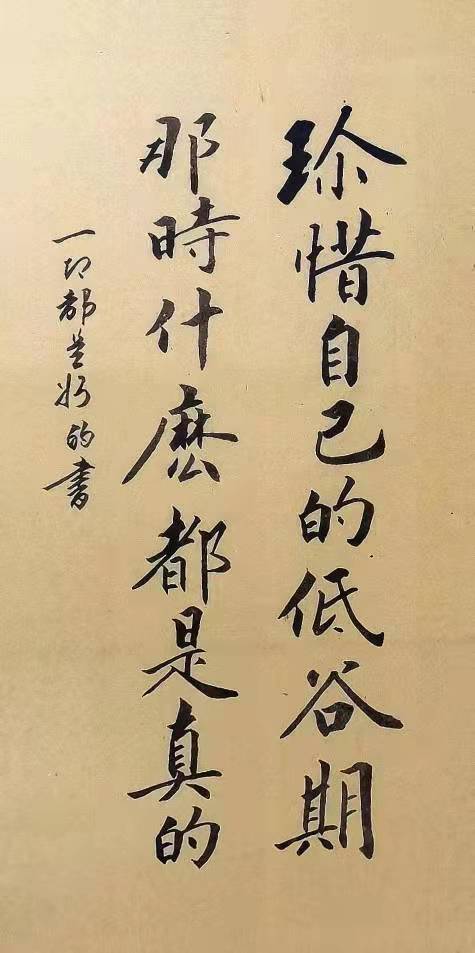 珎惜自己的低谷期
那時什麽都是真的
一切都是好的書